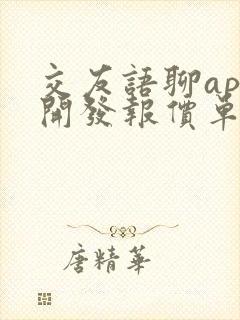 交友語聊ap
開發報價單
唐精華